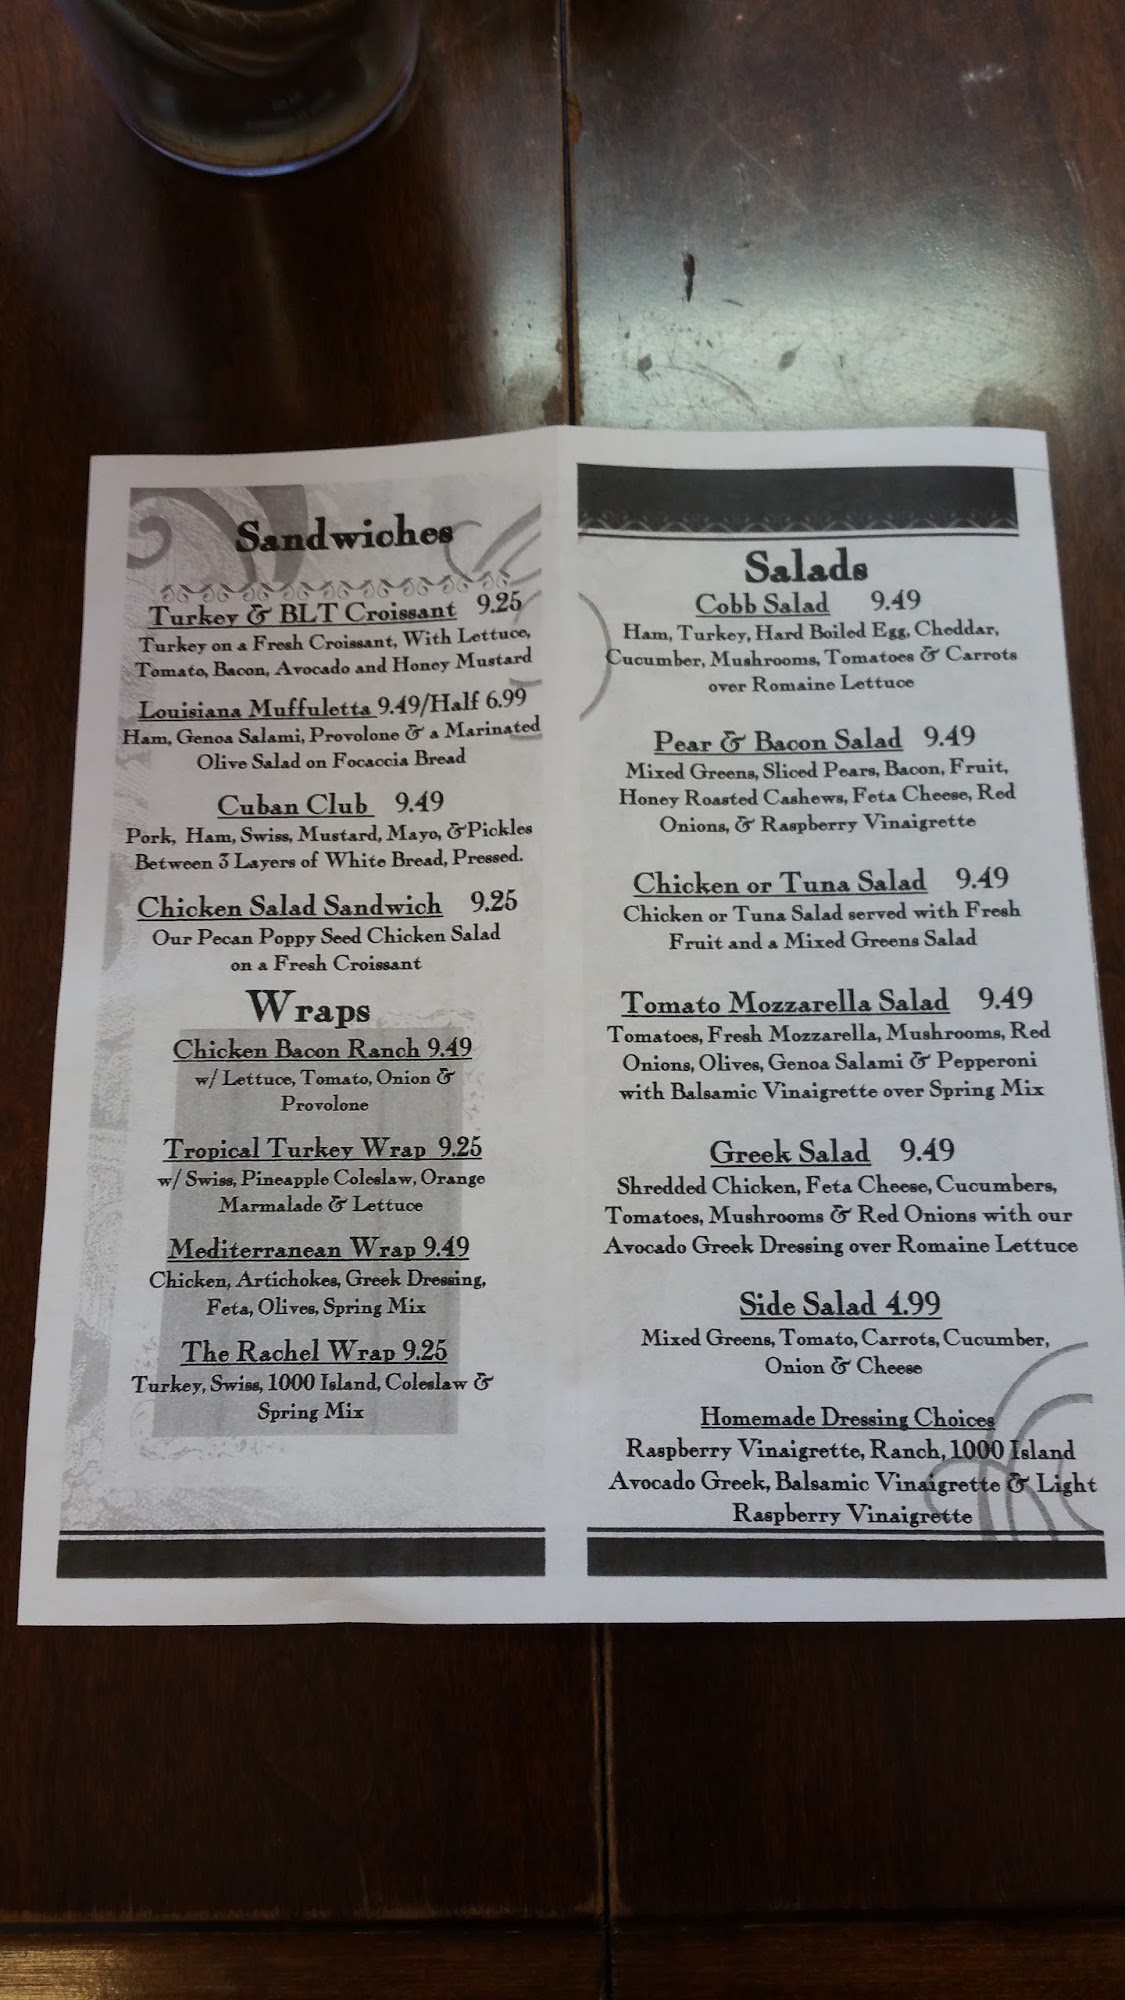 Sandwiches
Turkey & BLT Croissant 9.25
Turkey on a Fresh Croissant, With Lettuce,
Tomato, Bacon, Avocado and Honey Mustard
Louisiana Muffuletta 9.49/Half 6.99
Ham, Genoa Salami, Provolone & a Marinated
Olive Salad on Focaccia Bread
Cuban Club 9.49
Pork, Ham, Swiss, Mustard, Mayo, &Pickles
Between 3 Layers of White Bread, Pressed.
Chicken Salad Sandwich 9.25
Our Pecan Poppy Seed Chicken Salad
on a Fresh Croissant
Wraps
Chicken Bacon Ranch 9.49
w/ Lettuce, Tomato, Onion &
Provolone
Tropical Turkey Wrap 9.25
w/ Swiss, Pineapple Coleslaw, Orange
Marmalade & Lettuce
Mediterranean Wrap 9.49
Chicken, Artichokes, Greek Dressing,
Feta, Olives, Spring Mix
The Rachel Wrap 9.25
Turkey, Swiss, 1000 Island, Coleslaw &
Spring Mix
Salads
Cobb Salad 9.49
Ham, Turkey, Hard Boiled Egg, Cheddar,
Cucumber, Mushrooms, Tomatoes & Carrots
over Romaine Lettuce
Pear & Bacon Salad 9.49
Mixed Greens, Sliced Pears, Bacon, Fruit,
Honey Roasted Cashews, Feta Cheese, Red
Onions, & Raspberry Vinaigrette
Chicken or Tuna Salad 9.49
Chicken or Tuna Salad served with Fresh
Fruit and a Mixed Greens Salad
Tomato Mozzarella Salad 9.49
Tomatoes, Fresh Mozzarella, Mushrooms, Red
Onions, Olives, Genoa Salami & Pepperoni
with Balsamic Vinaigrette over Spring Mix
Greek Salad 9.49
Shredded Chicken, Feta Cheese, Cucumbers,
Tomatoes, Mushrooms & Red Onions with our
Avocado Greek Dressing over Romaine Lettuce
Side Salad 4.99
Mixed Greens, Tomato, Carrots, Cucumber,
Onion & Cheese
Homemade Dressing Choices
Raspberry Vinaigrette, Ranch, 1000 Island
Avocado Greek, Balsamic Vinaigrette & Light
Raspberry Vinaigrette